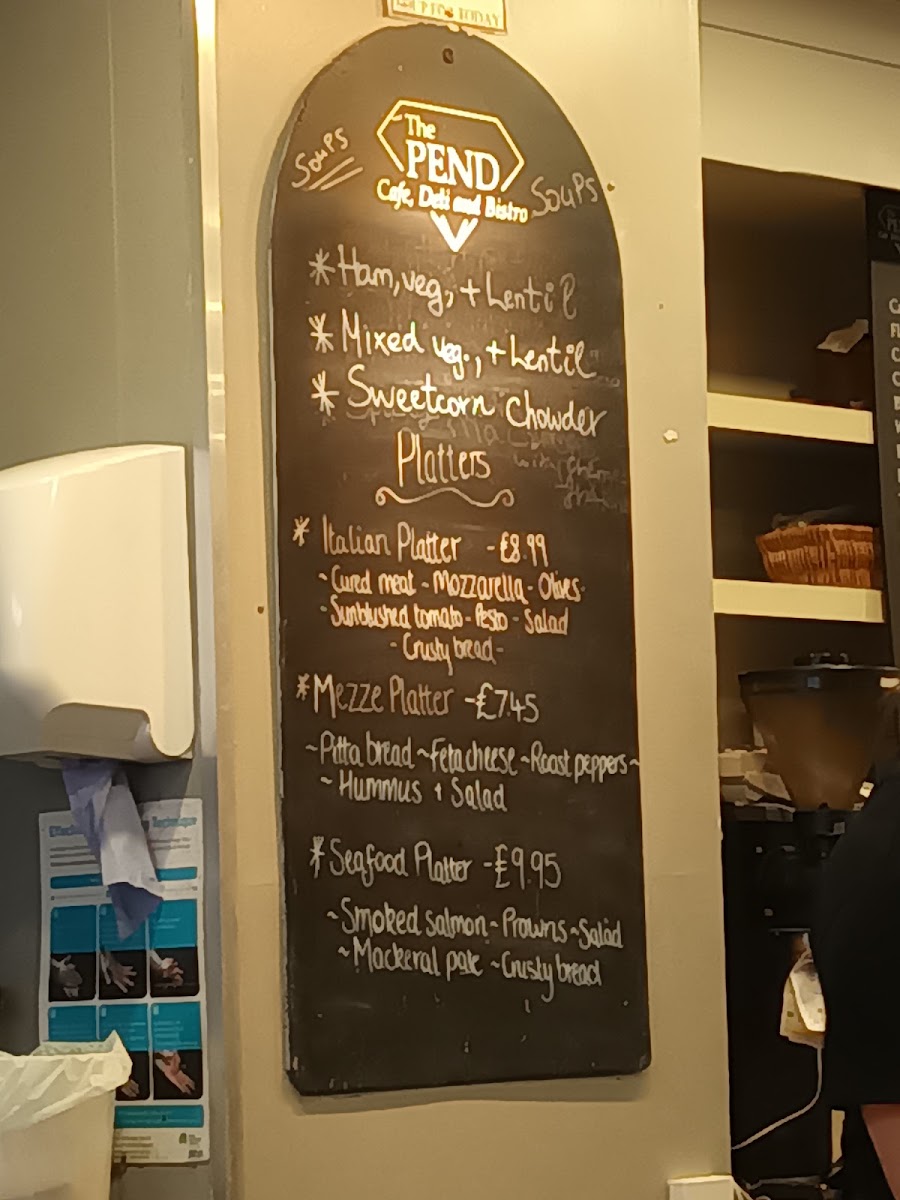 The
PEND
Cafe, Deli and Bistro
Soups
Soups
* Ham, veg., + Lentil
* Mixed veg., + Lentil
* Sweetcorn Chowder
Platters
* Italian Platter - £8.99
~ Cured meat - Mozzarella - Olives -
- Sunblushed tomato - Pesto - Salad
- Crusty bread -
* Mezze Platter - £7.45
~ Pitta bread ~ Feta cheese ~ Roast peppers ~
~ Hummus + Salad
* Seafood Platter - £9.95
~ Smoked salmon ~ Prawns ~ Salad
~ Mackeral pate ~ Crusty bread
Technique